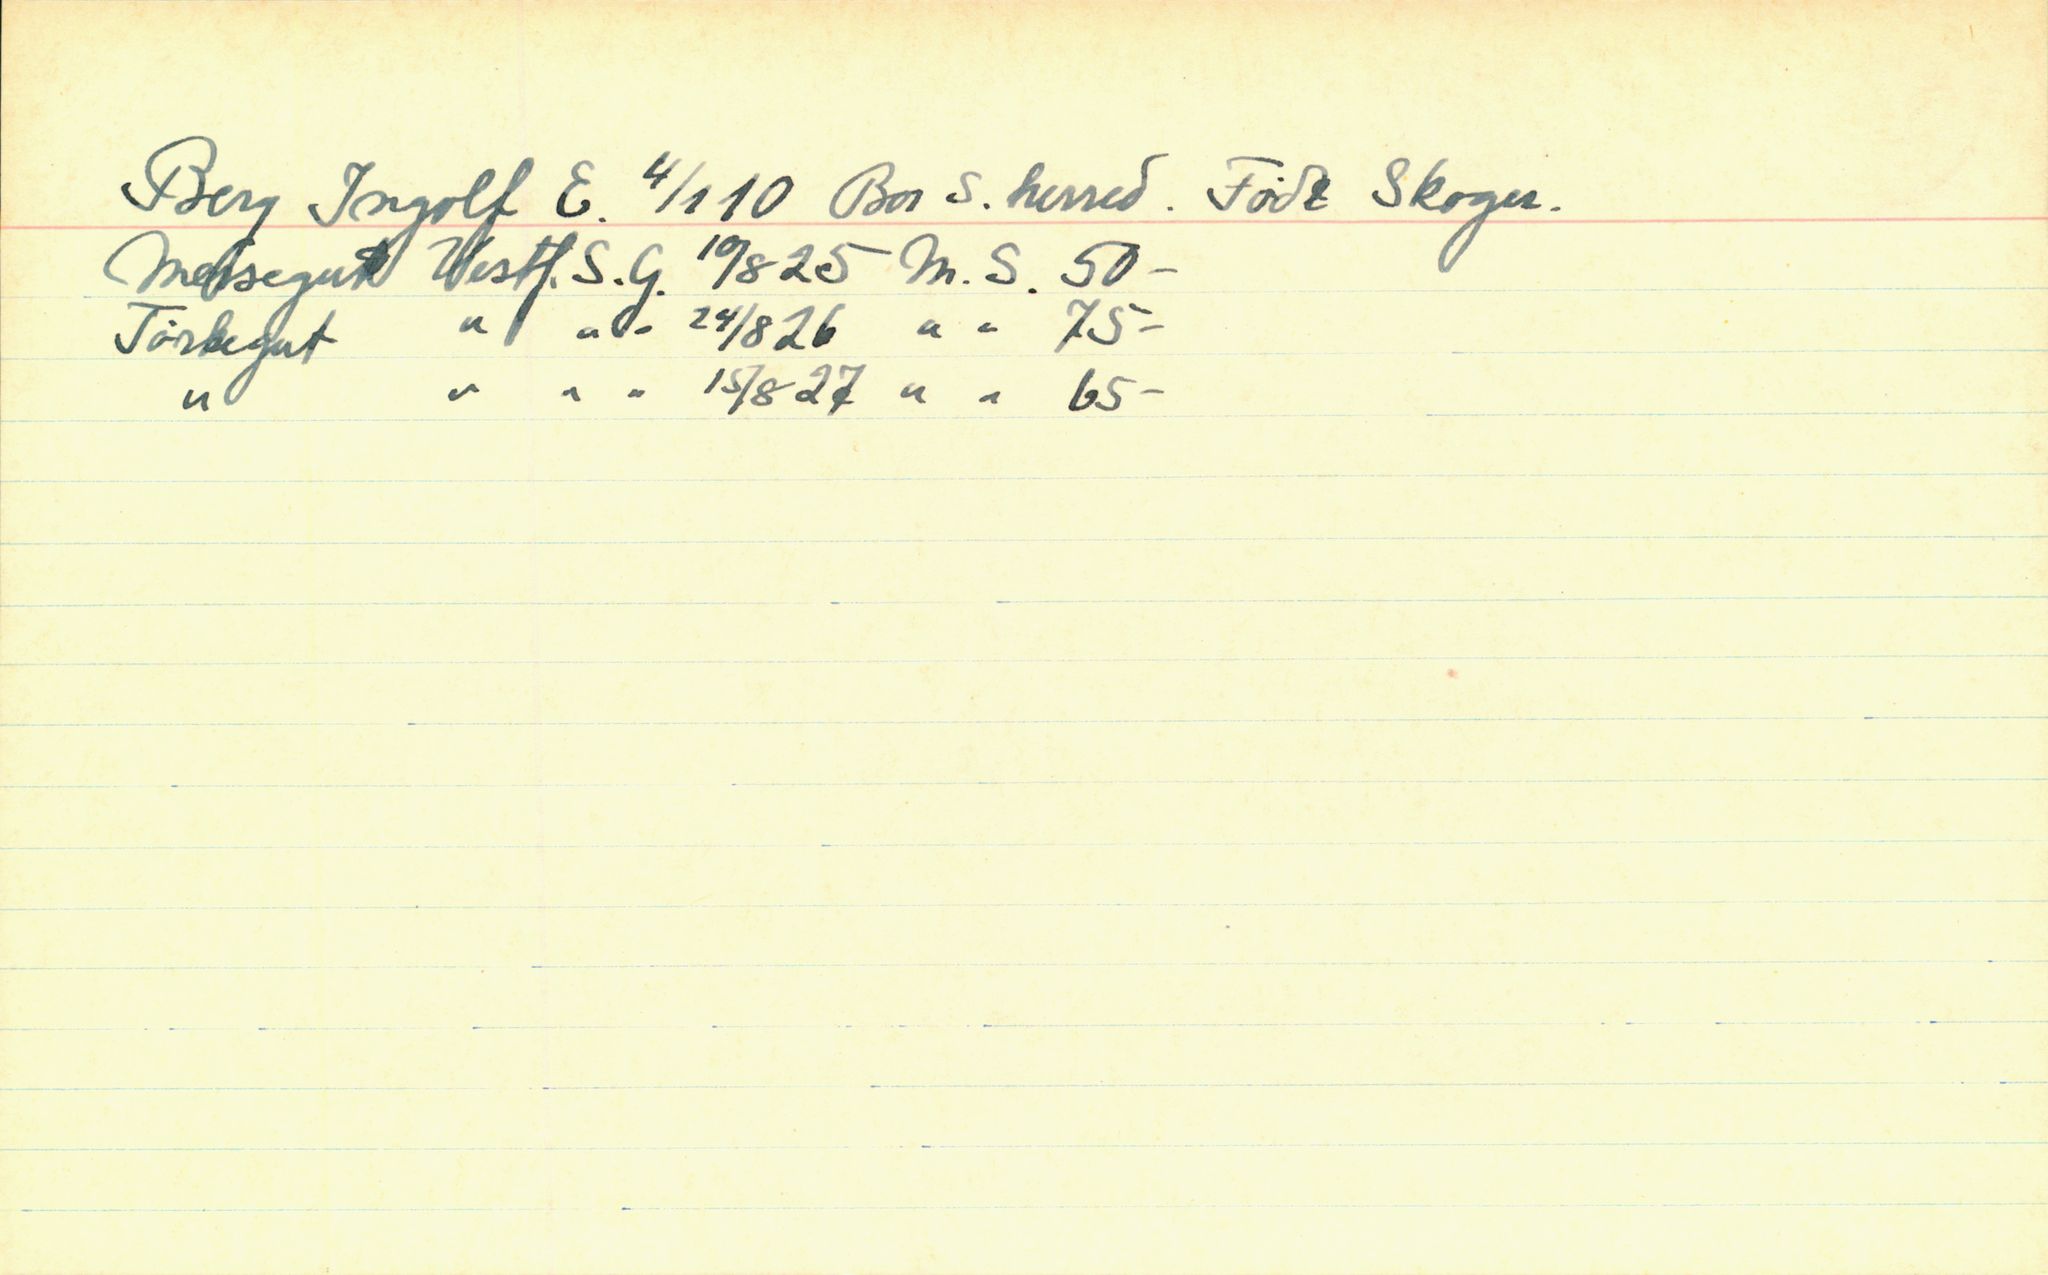 Berg Ingolf E. 4/1 10 Bor S. herred. Födt Skoger.
Messegutt Vestf. S. G. 10/8 25 M. S. 50-
Törkegut " " " 24/8 26 " " 75-
" " " " 15/8 27 " " 65-